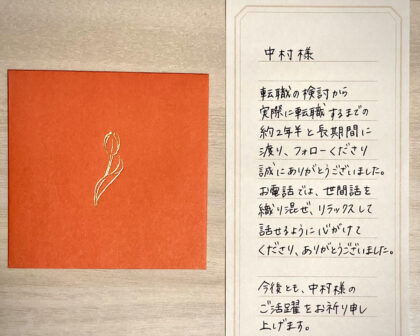 中村様
転職の検討から
実際に転職するまでの
約2年半と長期間に
渡り、フォローくださり
誠にありがとうございました。
お電話では、世間話を
織り混ぜ、リラックスして
話せるように心がけて
くださり、ありがとうございました。
今後とも、中村様の
ご活躍をお祈り申し
上げます。